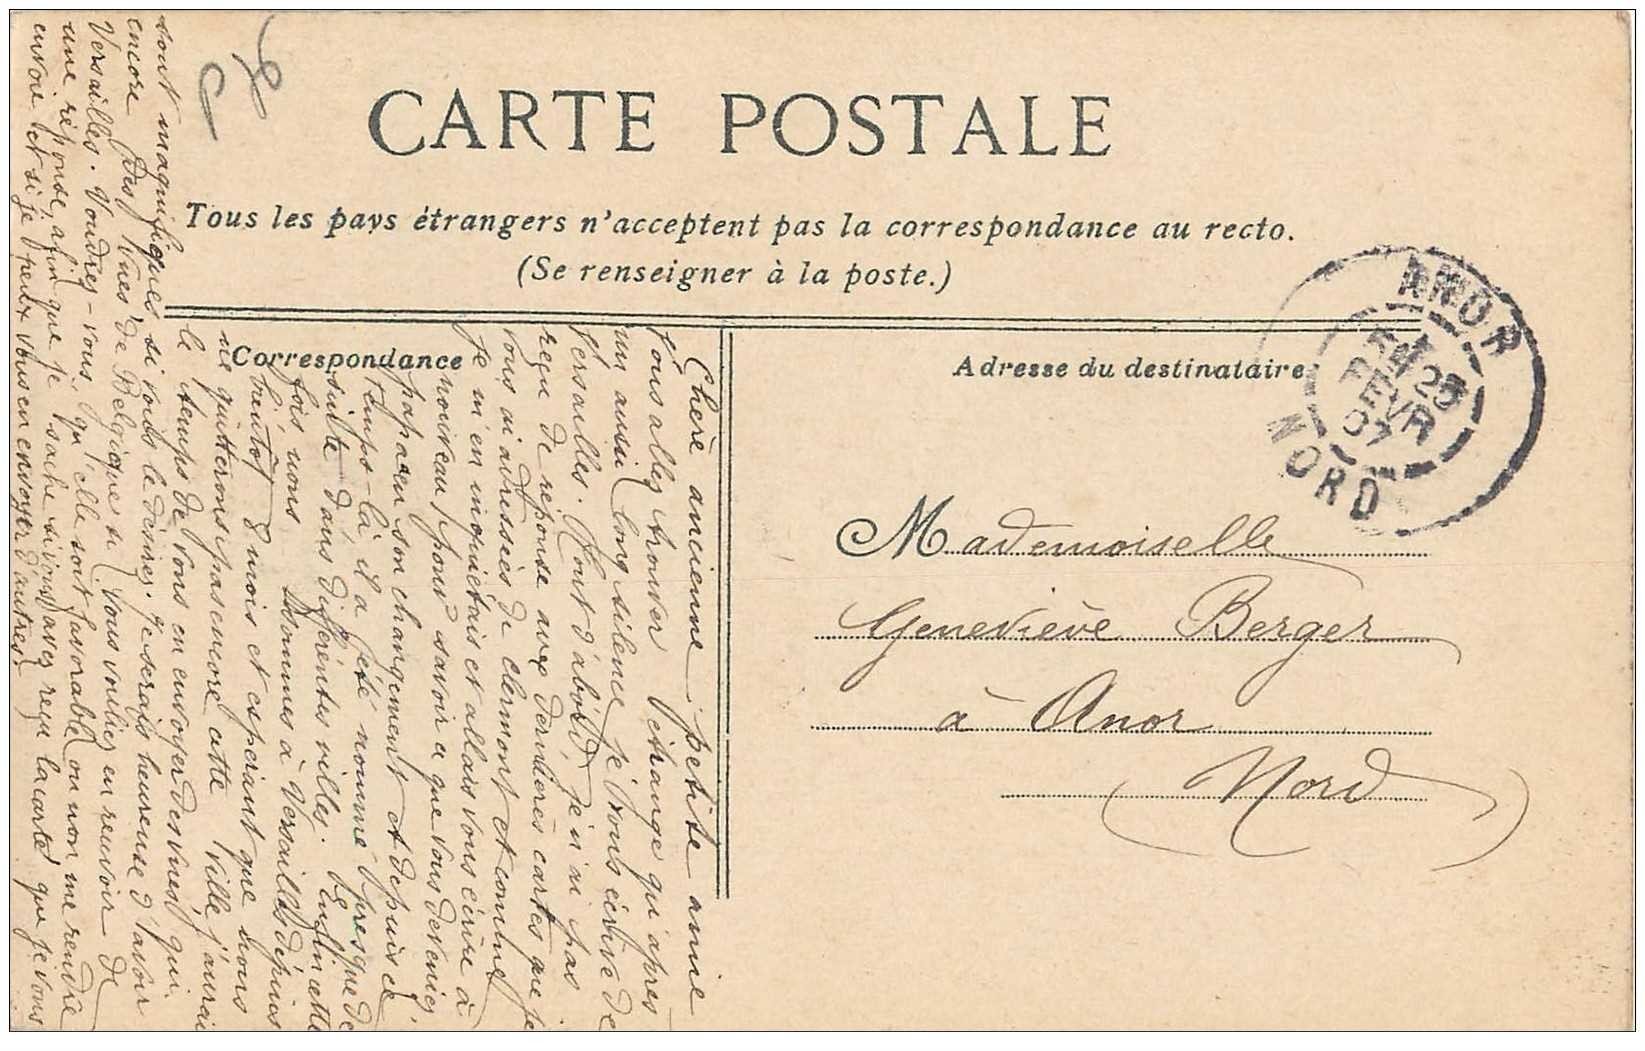 CARTE POSTALE
Tous les pays étrangers n'acceptent pas la correspondance au recto.
(Se renseigner à la poste.)
Correspondance
Adresse du destinataire
ANOR
25
FEVR
07
NORD
Mademoiselle
Geneviève Berger
à Anor
(Nord)
Chère ancienne petite amie
Vous allez trouver étrange qu'après
un aussi long silence je vous écrive de
Versailles. Tout d'abord, je n'ai pas
reçu de réponse aux dernières cartes que je
vous ai adressées de Clermont et comme
je m'en inquiétais et allais vous écrire à
nouveau pour savoir ce que vous deveniez,
papa eu son changement et depuis ce
temps-là il a été nommé presque de
suite dans différentes villes. Enfin cette
fois nous sommes à Versailles depuis
bientôt 8 mois et espérant que nous
ne quitterons pas encore cette ville j'aurai
le temps de vous en envoyer des vues qui
sont magnifiques si vous le désirez. Je serais heureuse d'avoir
encore des vues de Belgique si vous vouliez en revoir de
Versailles. Voudrez-vous qu'elle soit favorable ou non me rendre
une réponse, afin que je sache si vous avez reçu la carte que je vous
envoie et si je peux vous en envoyer d'autres.